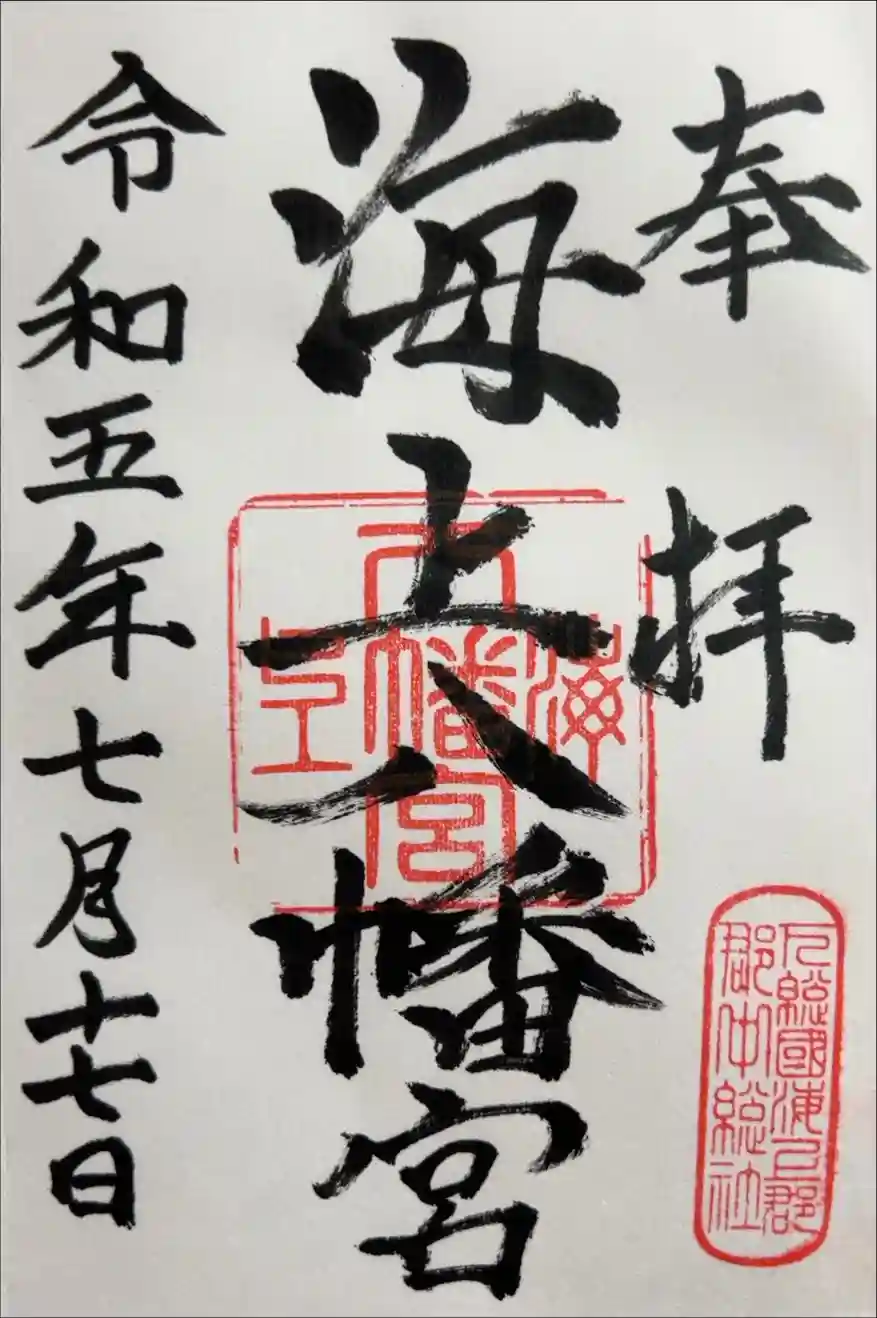 奉拝
下總國海上郡
郡中總社
海上八幡宮
海
幡宮
令和五年七月十七日